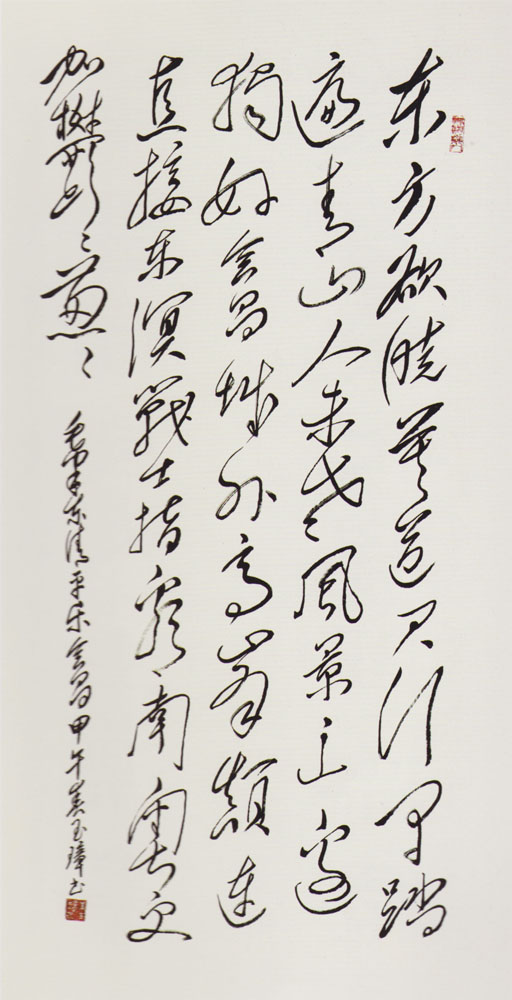 东方欲晓莫道君行早踏
遍青山人未老风景这边
独好会昌城外高峰颠连
直接东溟戰士指看南粤更
加鬱々葱々
毛泽东清平乐会昌甲午春玉璋书